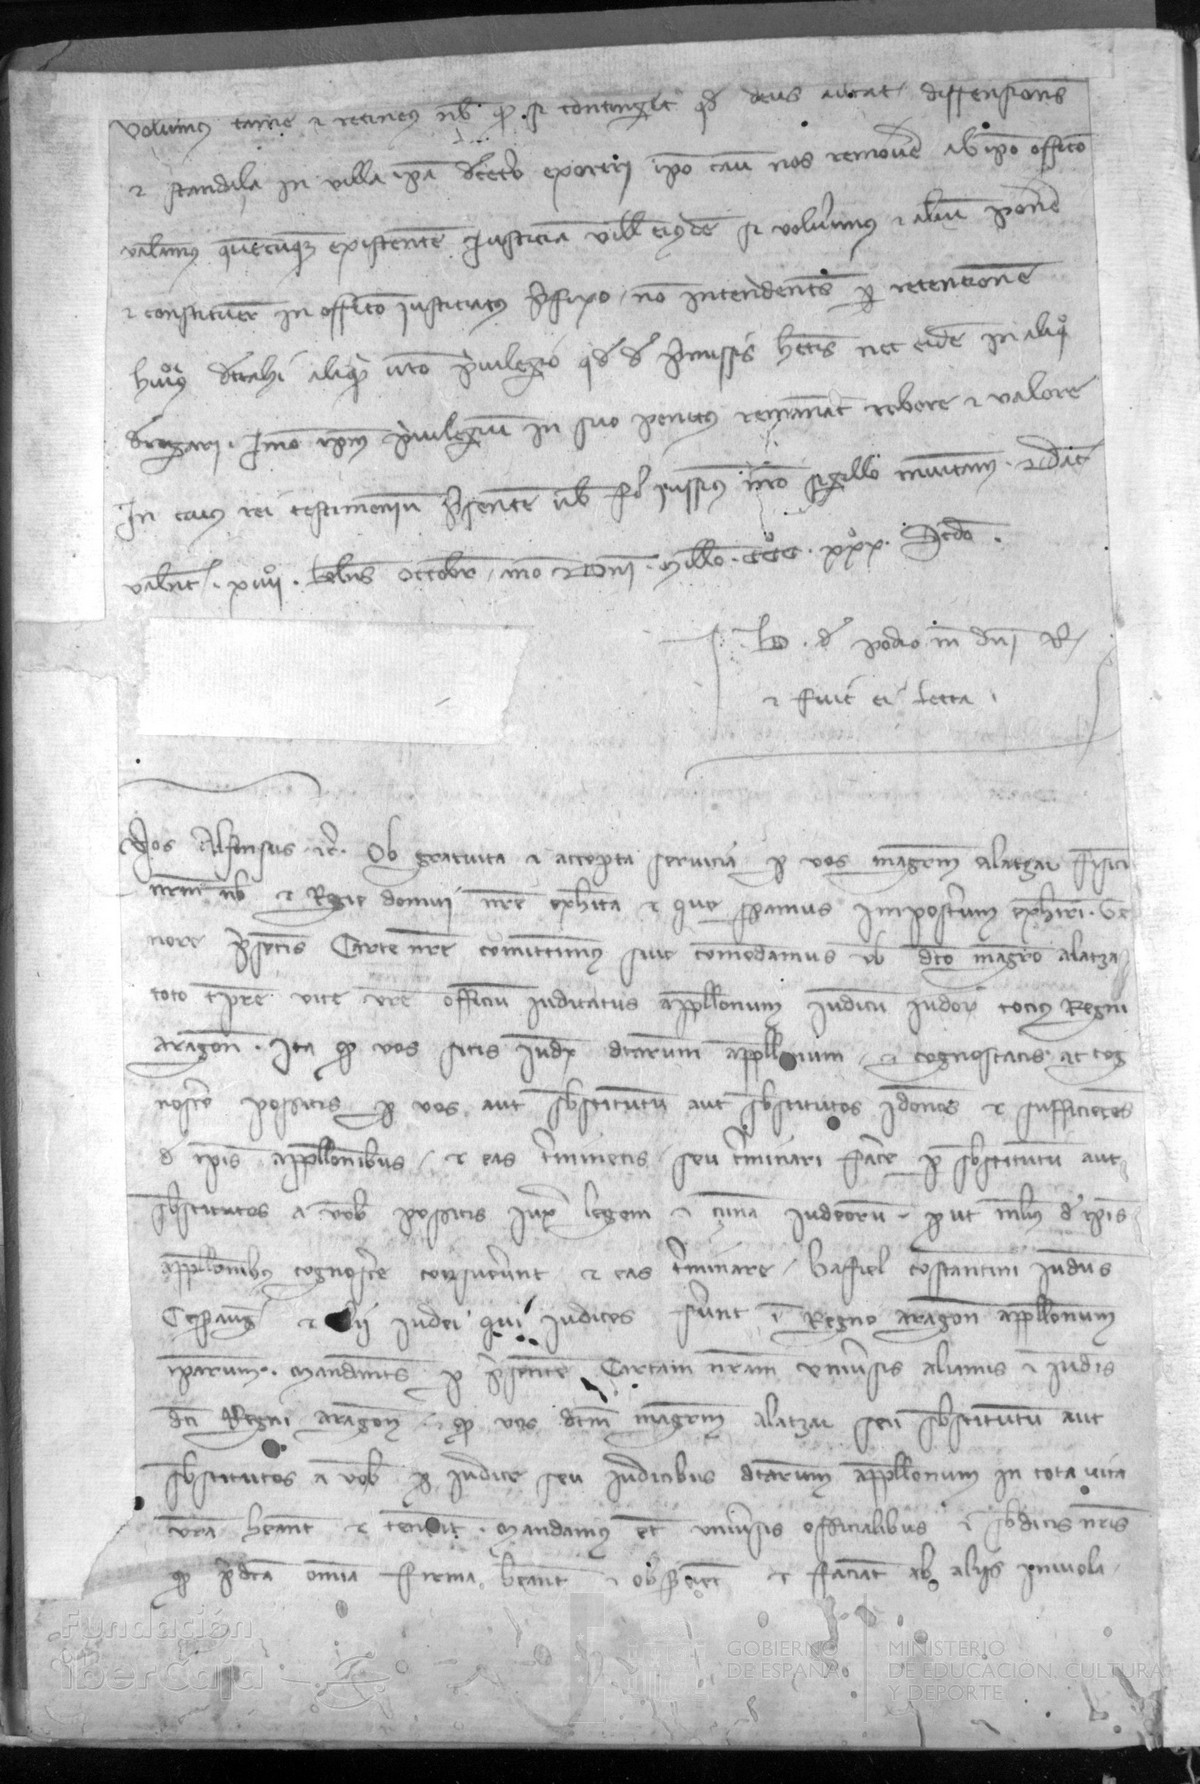 volumus tamen et retinemus nob quod si contingerit quod deus avertat dissensiones
et scandala in villa ipa decetero exoriri ipo casu nos removere ab ipo officio
valeamus quemcumque existentem Justiciam ville eiusdem si voluerimus et alium ponere
et constituere in officio justiciatus prefixo non intendentes per retentionem
huiusmodi detrahi aliquid vestro privilegio quod de premissis habetis nec eidem in aliquo
derogari Imo ipm privilegium in suo penitus remaneat robore et valore
In cuius rei testimonium presentem vob fieri jussimus nro sigillo munitam Dat
Valent xiiii Kalendas Octobris anno dni Millo CCC xxx Scdo
B de podio mandato dni R
et fuit ei lecta
Nos Alfonsus etc Ob gratuita et accepta servicia per vos magrm Alatzar fisicum
nrm nob et Regie domui nre exhibita et que speramus Imposterum exhiberi te
nore presentis Carte nre comittimus sive comendamus vob dco magro Alatza
toto tempre vite vre officium iudicatus appellonum iudicii iudeor tocius Regni
Aragon Ita quod vos sitis Judex dictarum appellonum et cognoscatis ac cog
noscere possitis per vos aut substitutum aut substitutos Idoneos et sufficientes
de ipis appellonibus et eas terminetis seu terminari facere per substitutum aut
substitutos a vob possitis Juxta legem et çunam Judeorum prout melius de ipis
appellonibus cognoscere consueverunt et eas terminare Haffiel Costantini Judeus
Cesaraug et alii Judei qui Judices fuerunt in Regno Aragon appellonum
ipsarum Mandantes per presentem Cartam nram universis aliamis et iudeis
dicti Regni Aragon quod vos dictum magrm Alatzar seu substitutum aut
substitutos a vob pro iudice seu iudicibus dictarum appellonum in tota vita
vra habeant et teneant Mandamus etiam universis officialibus et subditis nris
quod predicta omnia firma habeant et observent et faciant ab aliis inviola
Fundación
iberCaja
GOBIERNO
DE ESPAÑA
MINISTERIO
DE EDUCACIÓN, CULTURA
Y DEPORTE